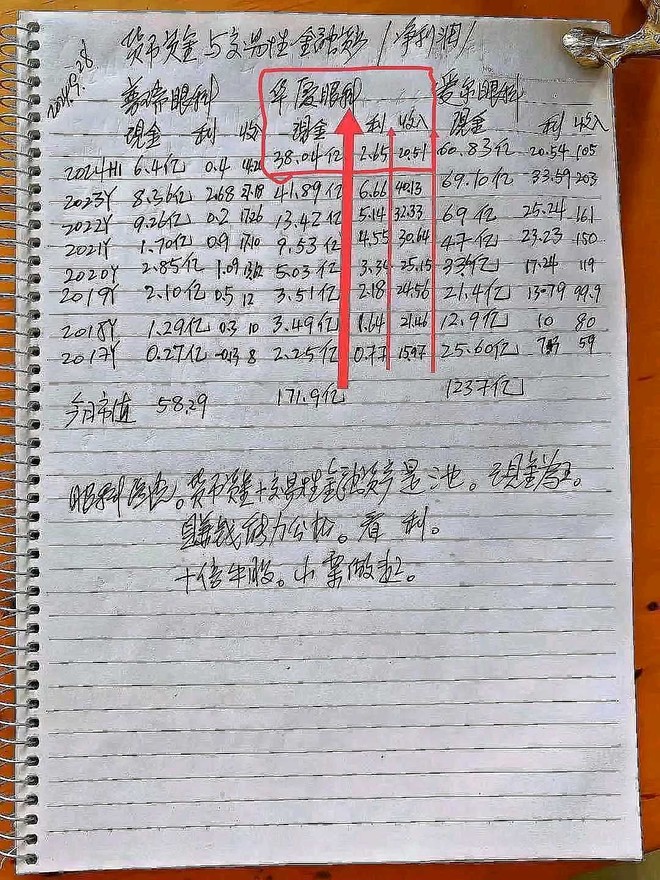 货币资金与交易性金融资产/净利润/
2024.9.28
普瑞眼科 华厦眼科 爱尔眼科
现金 利 收入 现金 利 收入 现金 利 收入
2024H1 6.4亿 0.4 38.04亿 2.65 20.51 60.83亿 20.54 105
2023Y 8.36亿 2.68 27.18 41.89亿 6.66 40.13 69.10亿 33.59 203
2022Y 9.26亿 0.2 17.26 13.42亿 5.14 32.33 69亿 25.24 161
2021Y 1.70亿 0.9 17.10 9.53亿 4.55 30.64 47亿 23.23 150
2020Y 2.85亿 1.09 13.62 5.03亿 3.34 25.15 33亿 17.24 119
2019Y 2.10亿 0.5 12 3.51亿 2.18 24.56 21.4亿 13.79 99.9
2018Y 1.29亿 0.3 10 3.49亿 1.64 21.46 12.9亿 10 80
2017Y 0.27亿 8 2.25亿 0.77 15.97 25.60亿 59
今日市值 58.29 171.9亿 1237亿
眼科 货币资金+交易性金融资产是 现金为王。
赚钱能力分析。看利。
十倍牛股。